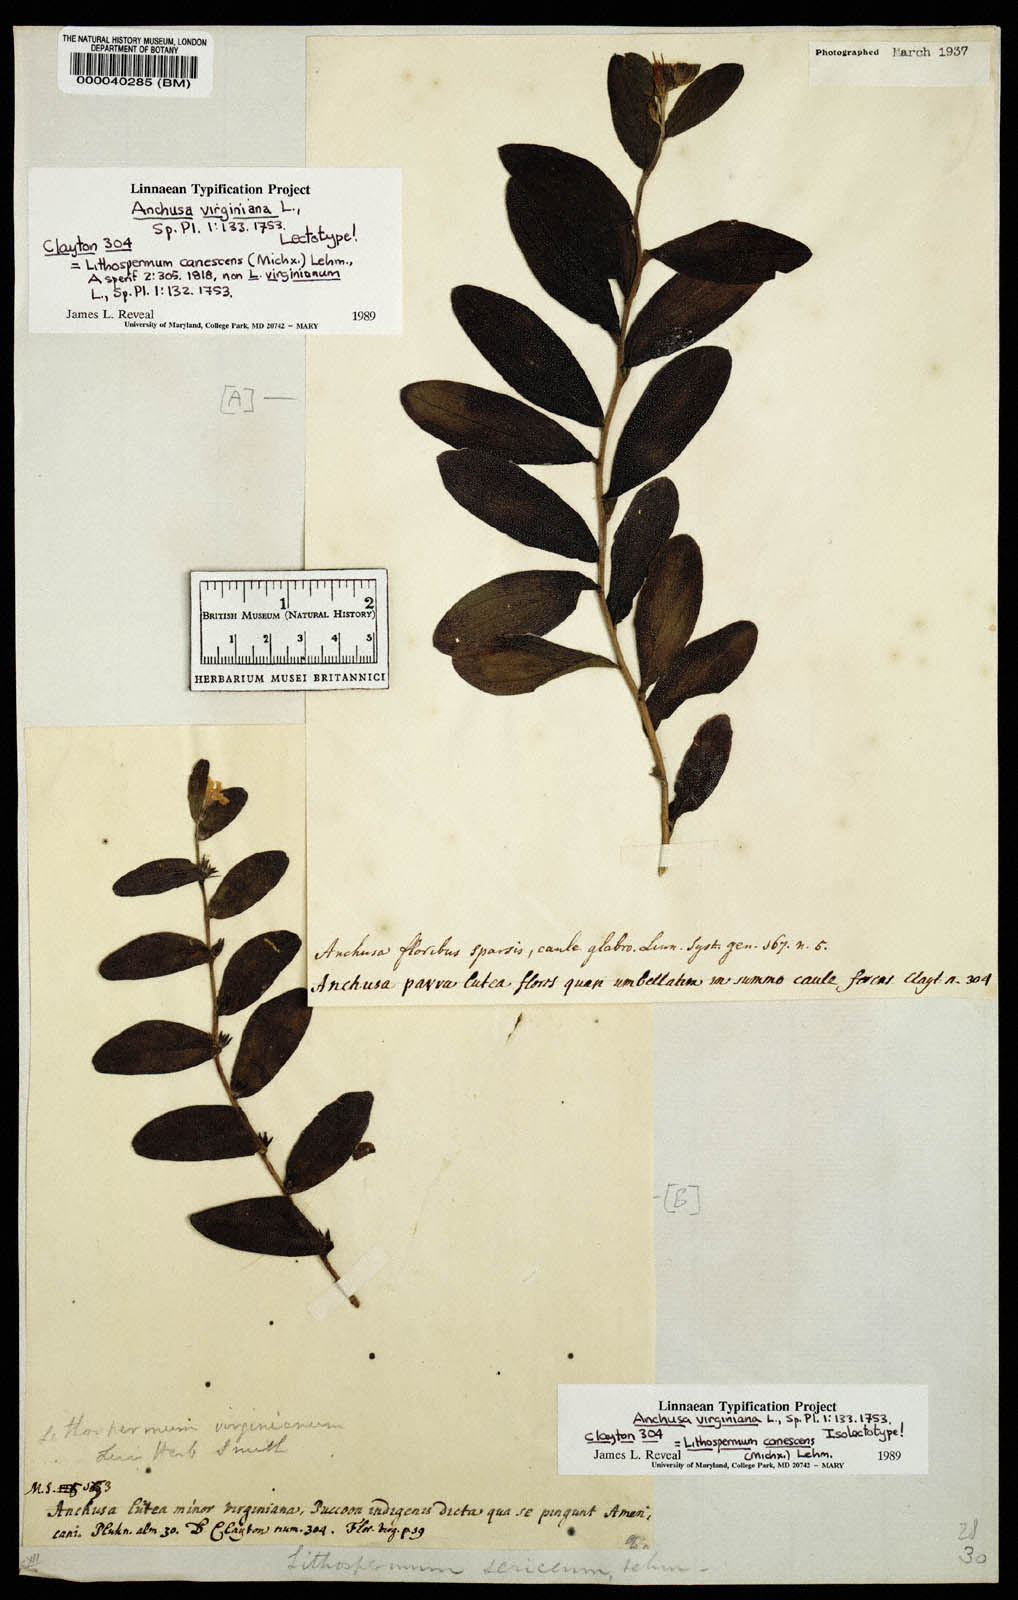 THE NATURAL HISTORY MUSEUM, LONDON
DEPARTMENT OF BOTANY
000040285 (BM)
Photographed March 1937
Linnaean Typification Project
Anchusa virginiana L.,
Sp. Pl. 1:133. 1753.
Clayton 304 Lectotype!
= Lithospermum canescens (Michx.) Lehm.,
Asperif 2:305. 1818, non L. virginianum
L., Sp. Pl. 1:132. 1753.
James L. Reveal 1989
University of Maryland, College Park, MD 20742 – MARY
[A] —
1 2
BRITISH MUSEUM (NATURAL HISTORY)
1 2 3 4 5
HERBARIUM MUSEI BRITANNICI
Anchusa floribus sparsis, caule glabro. Linn. Syst. gen. 167. n. 5.
Anchusa parva lutea flores quasi umbellatim in summo caule ferens Clayt n. 304
- [B]
Lithospermum virginianum
Linn Herb Smith
Linnaean Typification Project
Anchusa virginiana L., Sp. Pl. 1:133. 1753.
Clayton 304 Isolectotype!
= Lithospermum canescens
(Michx.) Lehm.
James L. Reveal 1989
University of Maryland, College Park, MD 20742 – MARY
M.S.
Anchusa lutea minor virginiana, Puccoon indigenis dicta qua se pingunt Ameri
cani. Plukn. alm 30. D Clayton num. 304. Flor. Virg. p. 19
Lithospermum sericeum, Lehm -
28
30